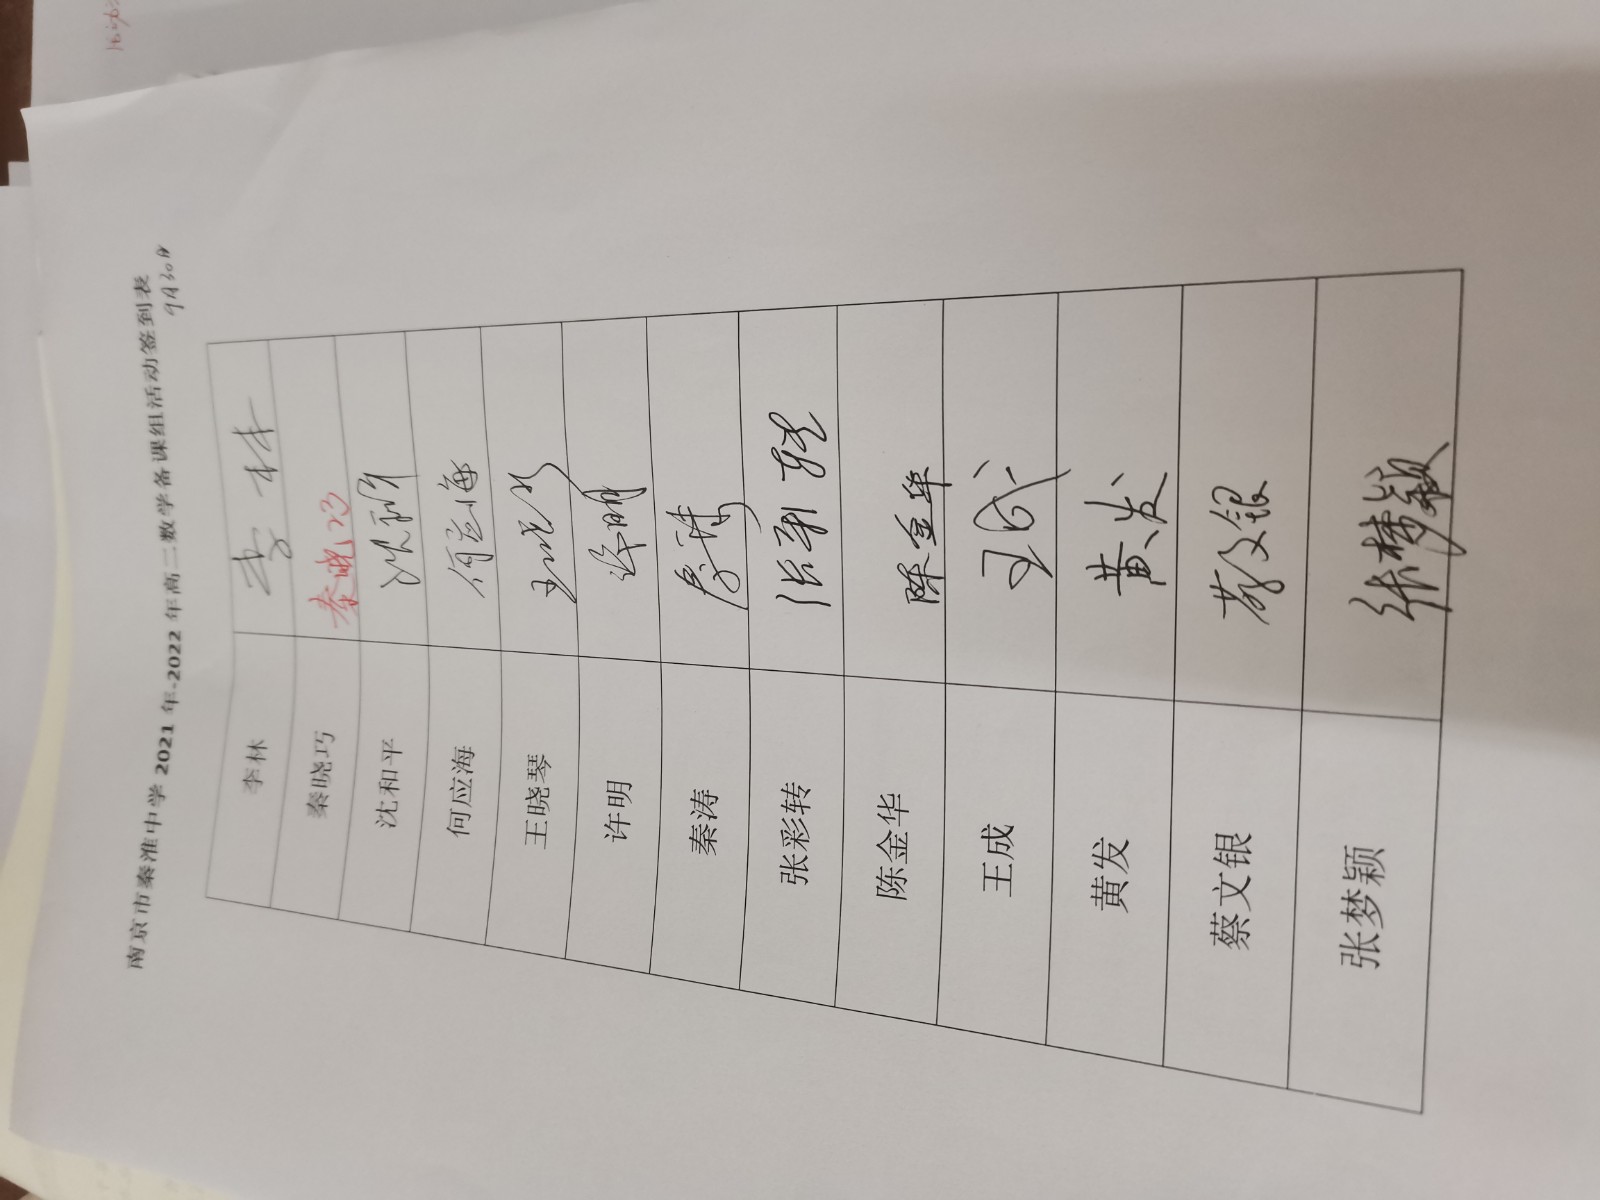 南京市秦淮中学 2021 年-2022 年高二数学备课组活动签到表
9月30日
李林 李林
秦晓巧 秦晓巧
沈和平 沈和平
何应海 何应海
王晓琴 王晓琴
许明 许明
秦涛 秦涛
张彩转 张彩转
陈金华 陈金华
王成 王成
黄发 黄发
蔡文银 蔡文银
张梦颖 张梦颖
活动